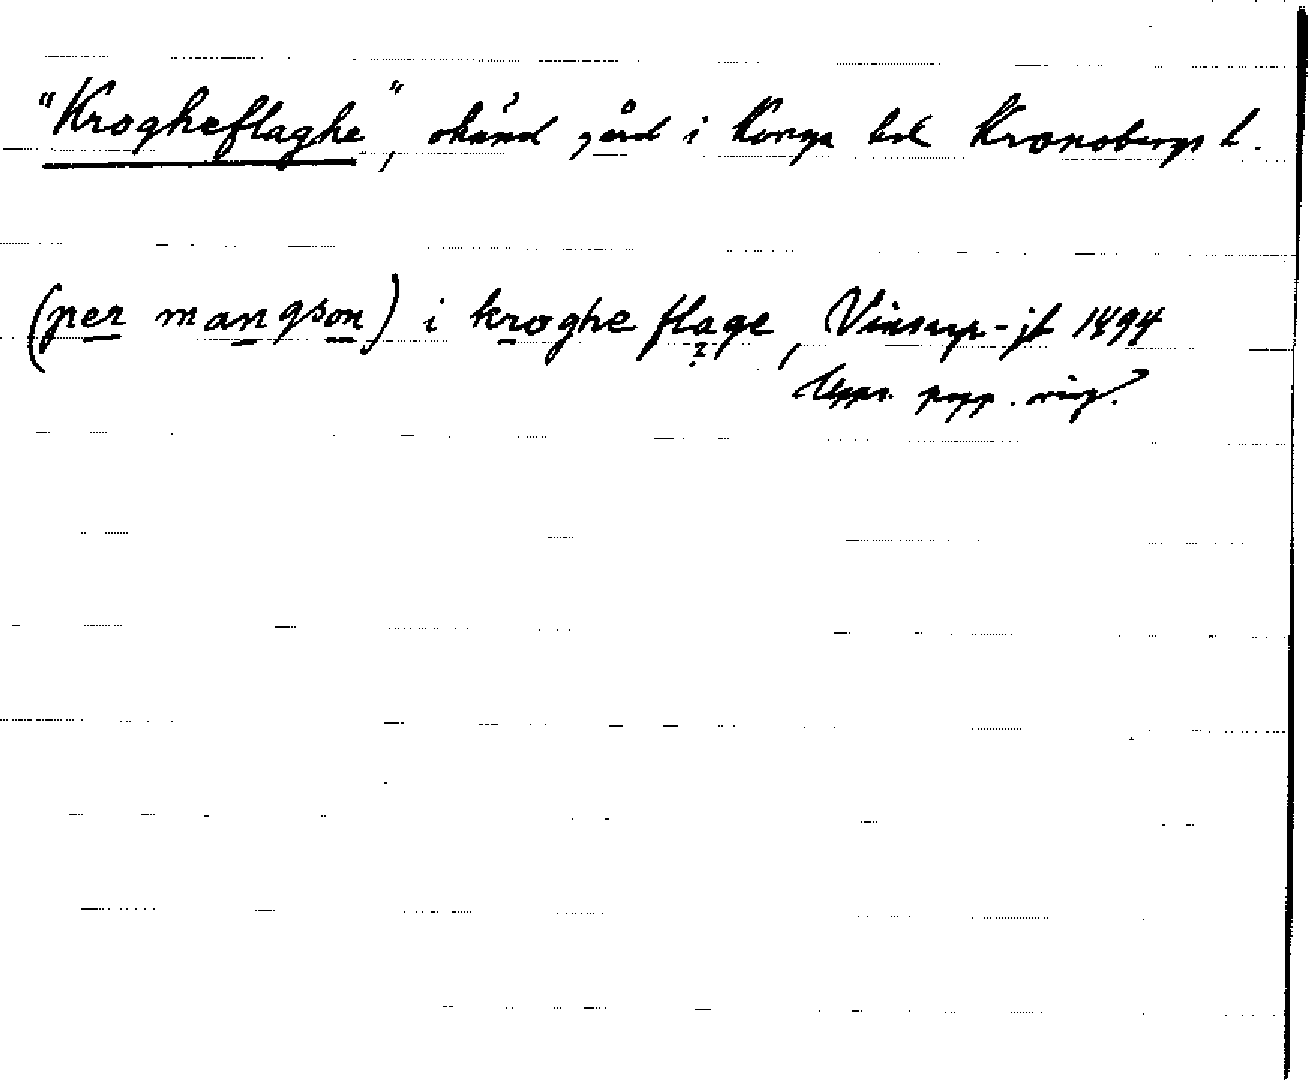 "Krogheflaghe", okänd gård i Konga hd Kronobergs l.
(per mangson) i kroghe flage, Vinstorp-jb 1494
Upps. papp.